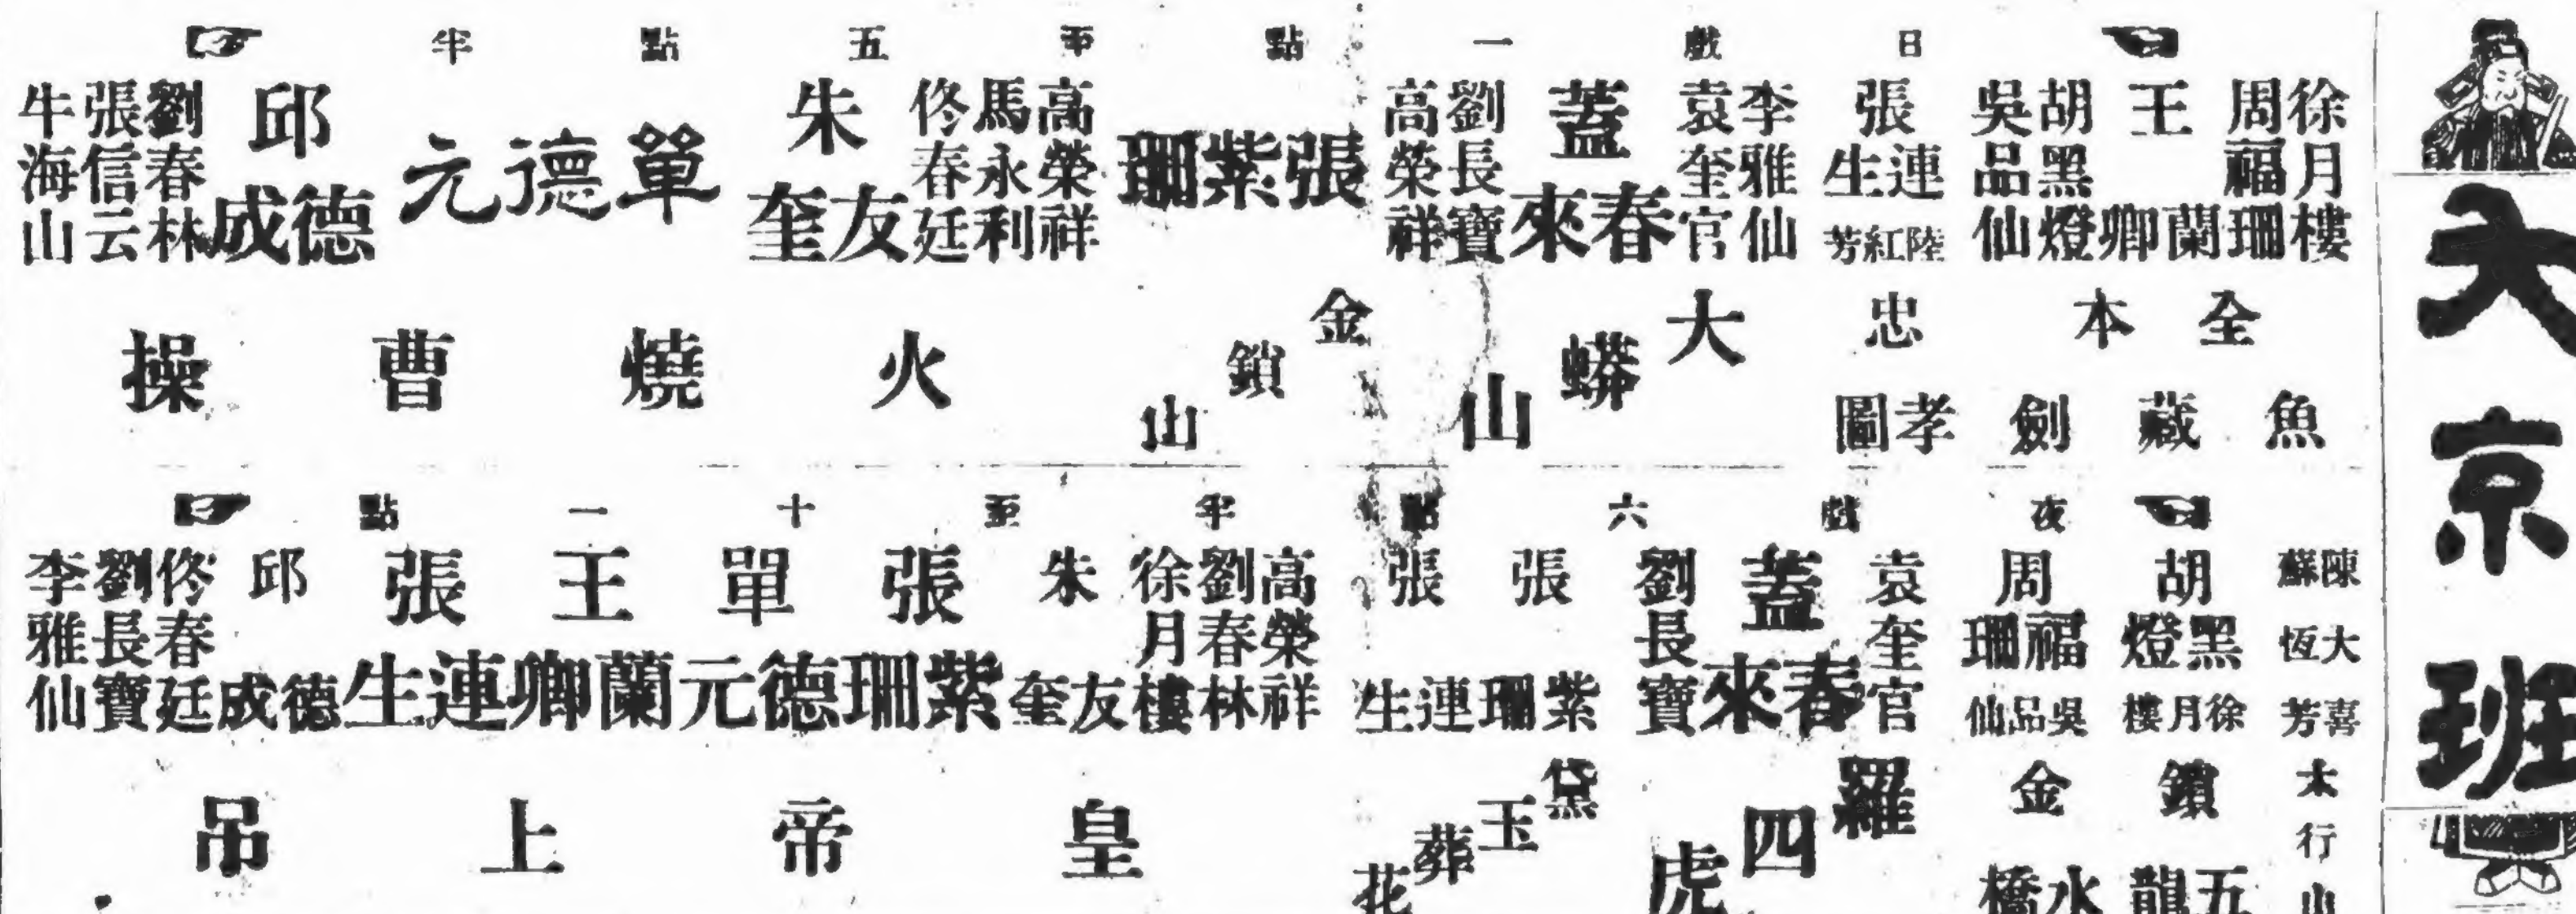 大京班
日戲一點至五點半
徐月樓
周福珊
王蘭卿
胡黑燈
吳品仙
張連生
陸紅芳
李雅仙
袁奎官
蓋春來
劉長寶
高榮祥
張紫珊
高榮祥
馬永利
佟春廷
朱友奎
單德元
邱德成
劉春林
張信云
牛海山
全本魚藏劍
忠孝圖
大蟒山
金鎖山
火燒曹操
夜戲六點半至十一點
陳大喜
蘇恆芳
胡黑燈
徐月樓
周福珊
吳品仙
袁奎官
蓋春來
劉長寶
張紫珊
張連生
高榮祥
劉春林
徐月樓
朱友奎
張紫珊
單德元
王蘭卿
張連生
邱德成
佟春廷
劉長寶
李雅仙
太行山
鎖五龍
金水橋
羅四虎
黛玉葬花
皇帝上吊